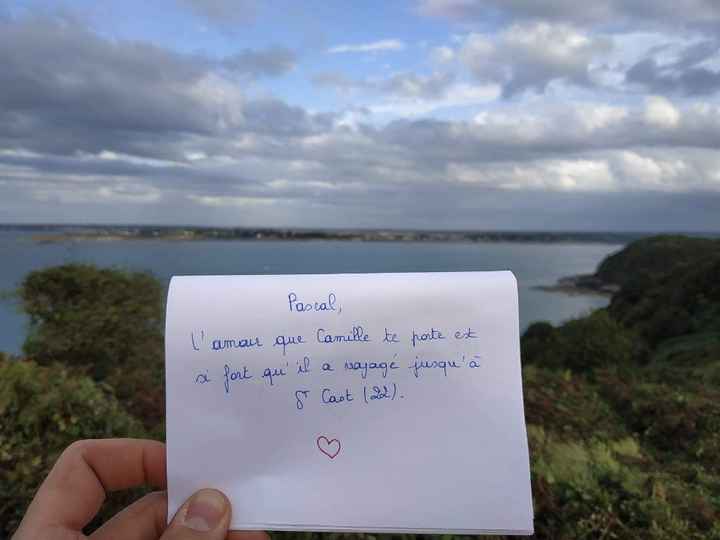 Pascal,
L'amour que Camille te porte est
si fort qu'il a voyagé jusqu'à
St Cast (22).